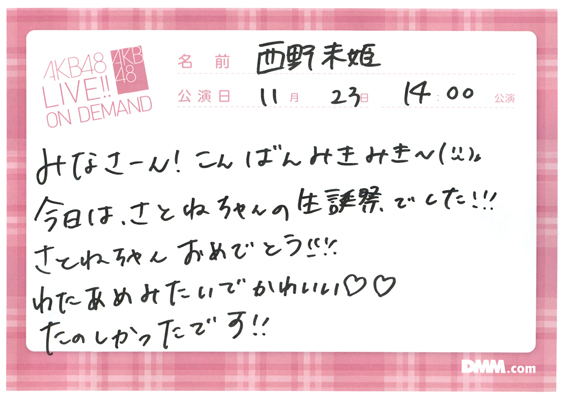 AKB48
LIVE!!
ON DEMAND
AKB
48
名前 西野未姫
公演日 11月 23日 14:00 公演
みなさーん!こんばんみきみき〜(¨)。
今日は、さとねちゃんの生誕祭でした!!!
さとねちゃんおめでとう!!!!
わたあめみたいでかわいい♡♡
たのしかったです!!
DMM.com